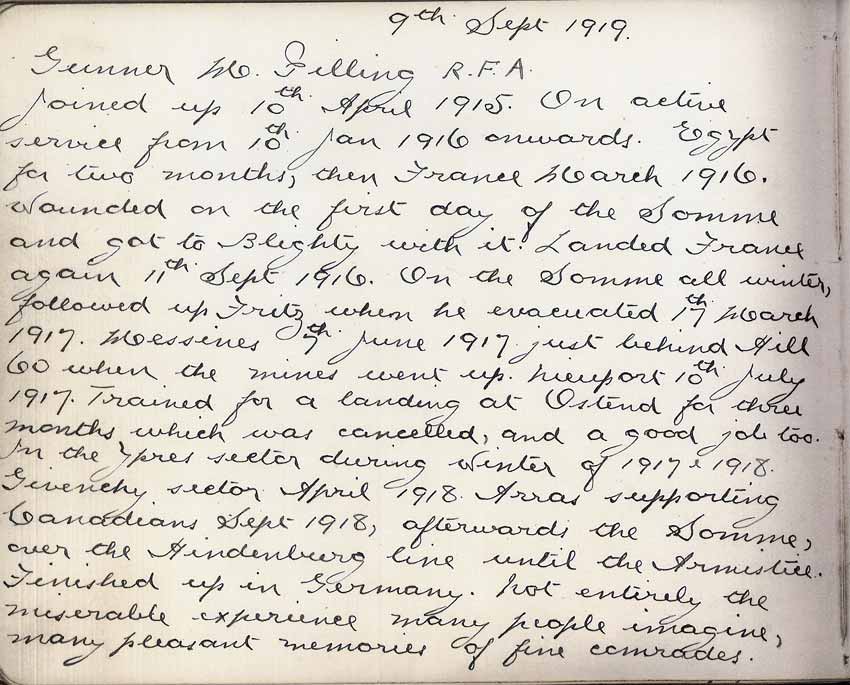 9th Sept 1919.
Gunner M. Pilling R.F.A.
Joined up 10th April 1915. On active
service from 10th Jan 1916 onwards. Egypt
for two months, then France March 1916.
Wounded on the first day of the Somme
and got to Blighty with it. Landed France
again 11th Sept 1916. On the Somme all winter,
followed up Fritz when he evacuated 17th March
1917. Messines 7th June 1917 just behind Hill
60 when the mines went up. Nieuport 10th July
1917. Trained for a landing at Ostend for three
months which was cancelled, and a good job too.
In the Ypres sector during Winter of 1917 & 1918.
Givenchy sector April 1918. Arras supporting
Canadians Sept 1918, afterwards the Somme,
over the Hindenburg line until the Armistice.
Finished up in Germany. Not entirely the
miserable experience many people imagine,
many pleasant memories of fine comrades.